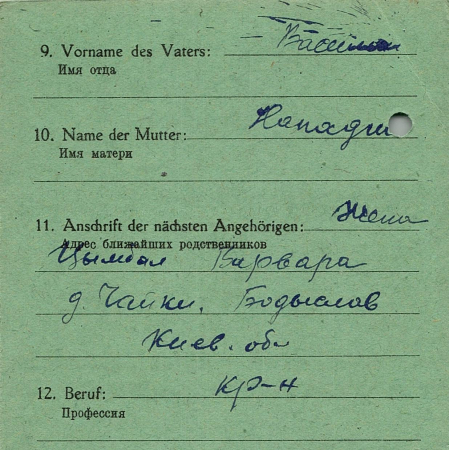 9. Vorname des Vaters: Василий
Имя отца
10. Name der Mutter:
Имя матери
11. Anschrift der nächsten Angehörigen: Жена
Адрес ближайших родственников
Цымбал Варвара
д. Чайки, Бодыслов
Киев. обл
12. Beruf: кр-н
Профессия